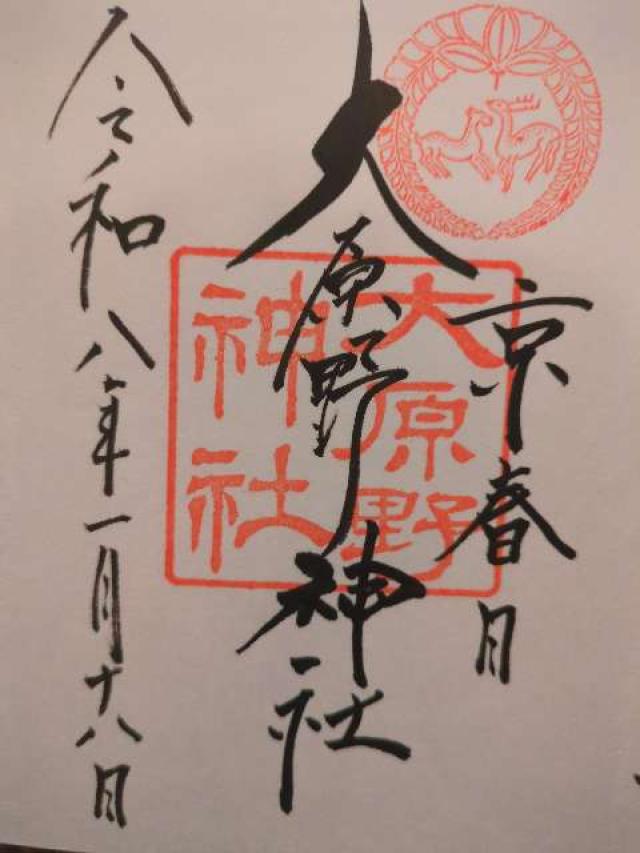 京春日
大原野神社
大原野
神社
令和八年一月十八日